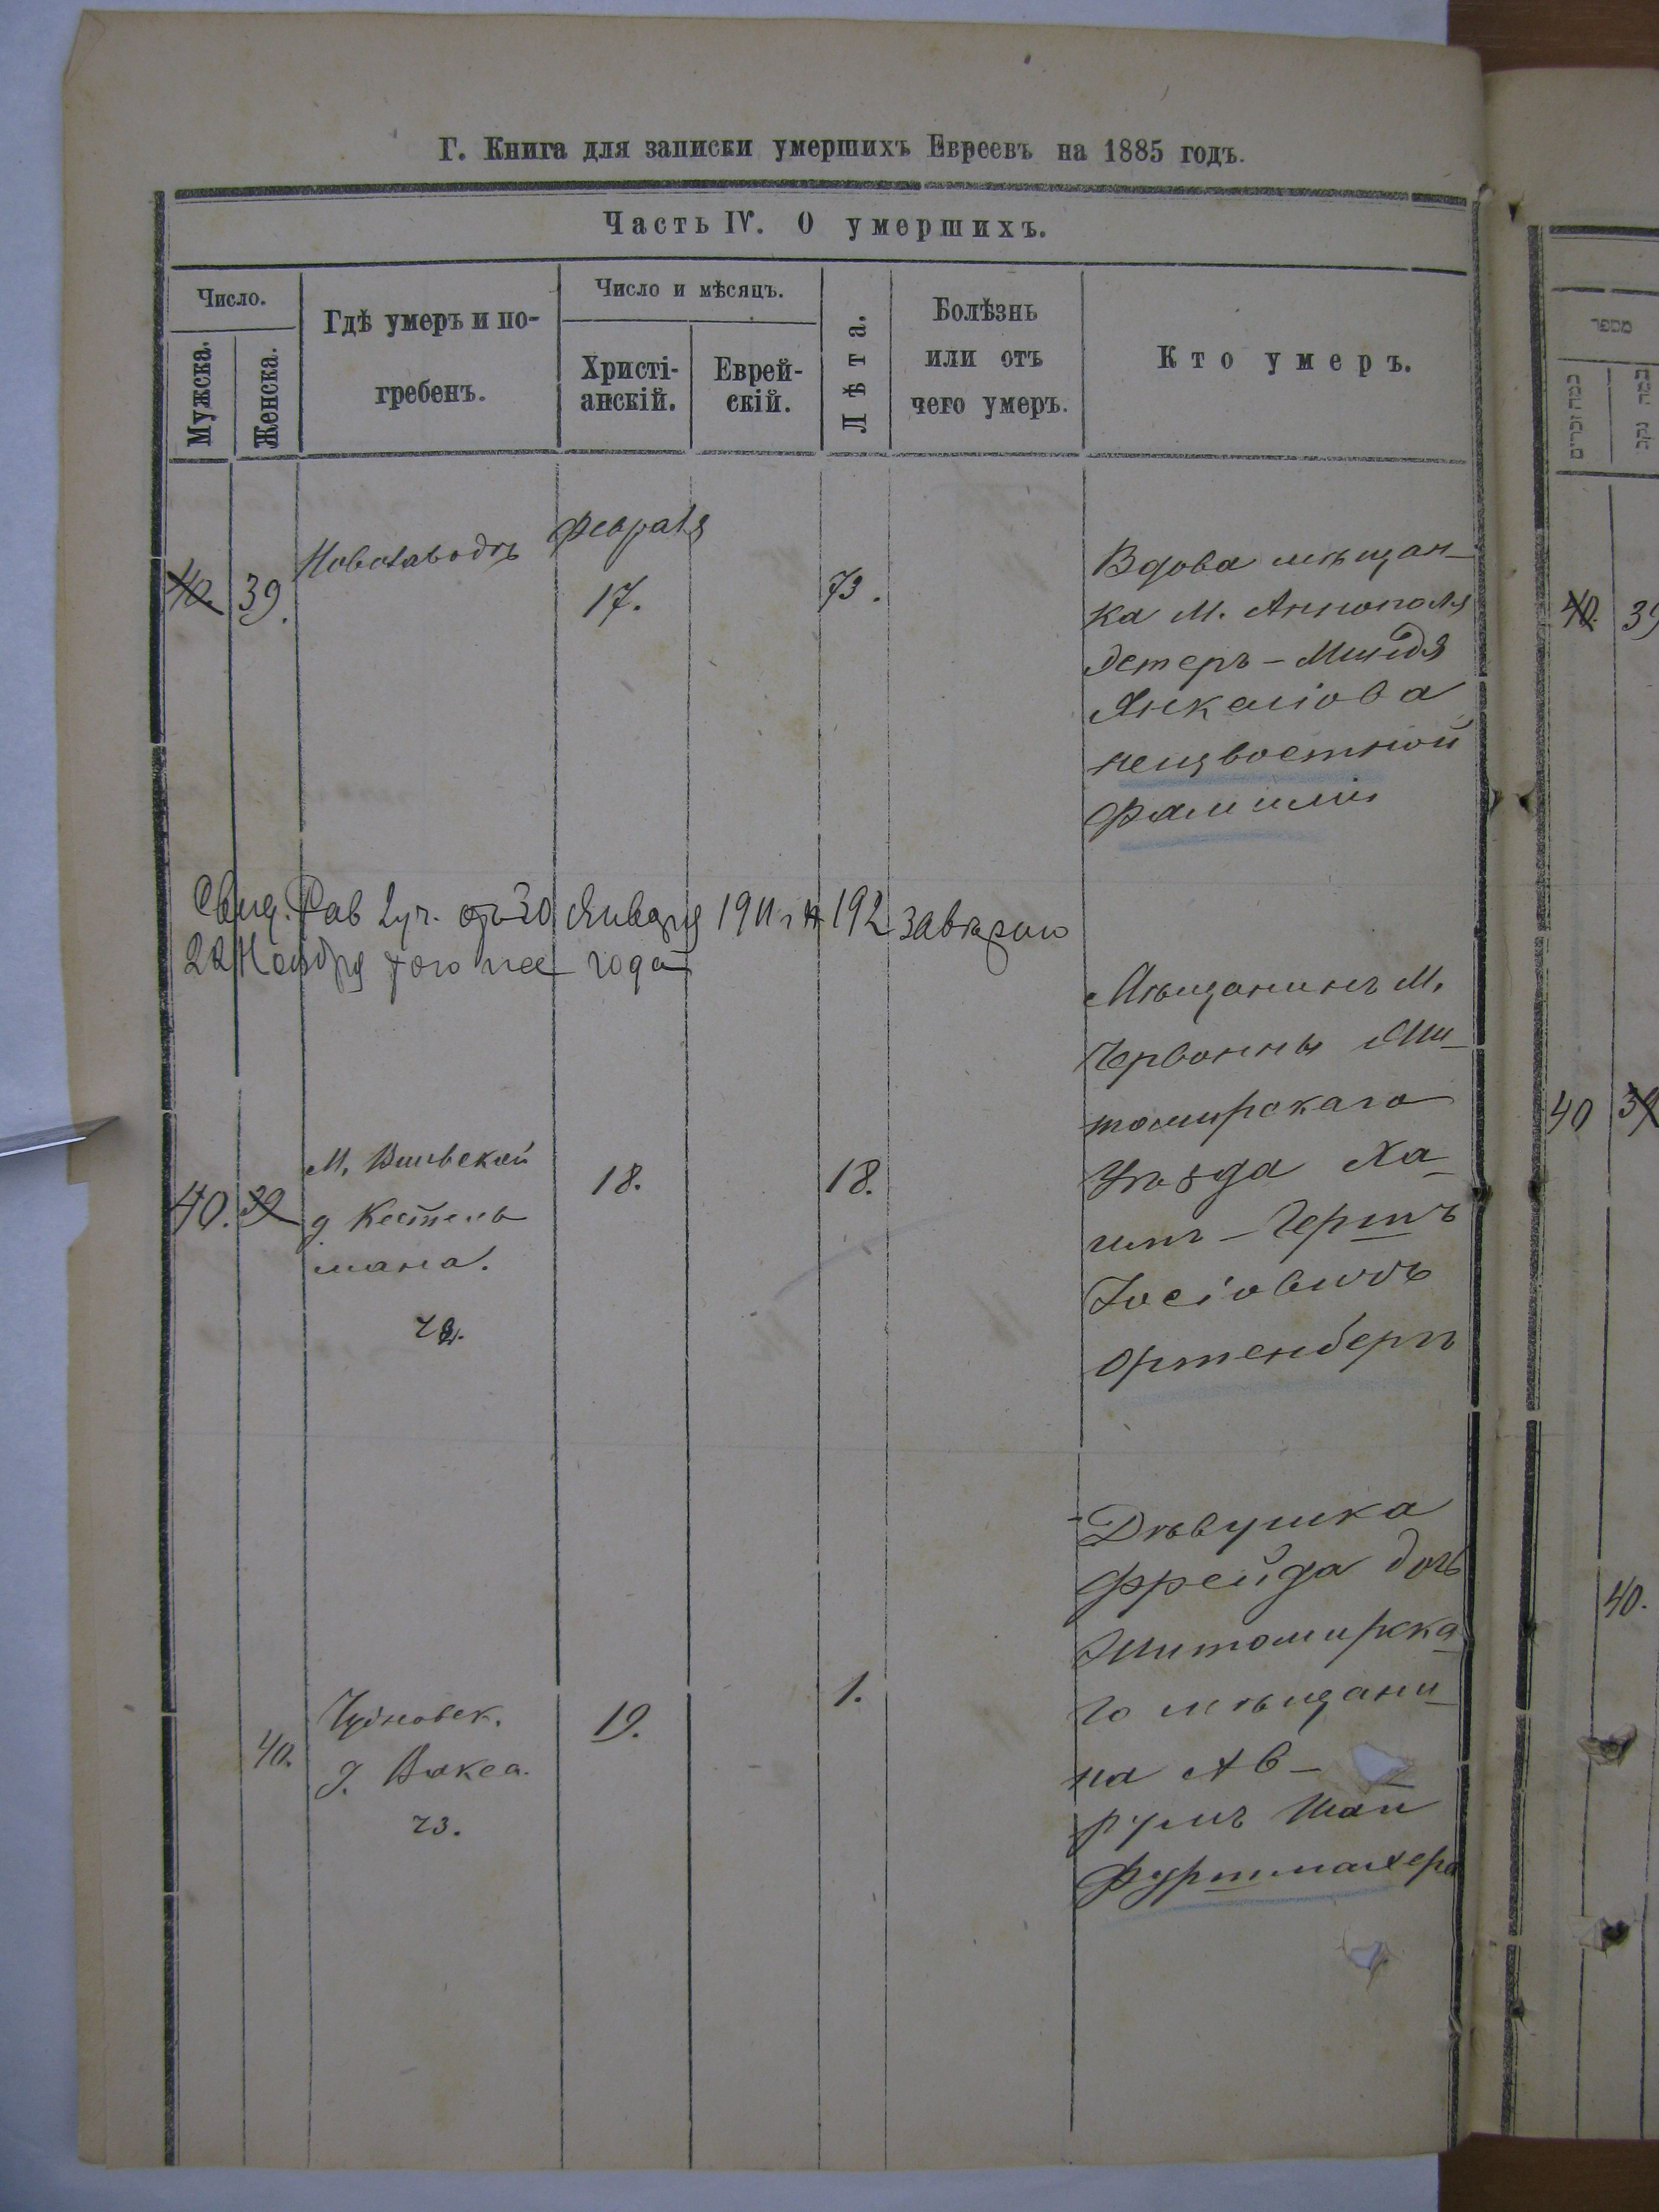 Г. Книга для записки умершихъ Евреевъ на 1885 годъ.
Часть IV. О умершихъ.
Число.
Мужска.
Женска.
Гдѣ умеръ и по-
гребенъ.
Число и мѣсяцъ.
Христі-
анскій.
Еврей-
скій.
Лѣта.
Болѣзнь
или отъ
чего умеръ.
Кто умеръ.
40. 39. Новозаводъ
Февраля
17.
73.
Вдова мѣщан-
ка М. Аннополя
Эстеръ - Миндя
Янкеліова
неизвостной
Фамиліи
Свид. Рав 2 уч. от 30 Января 1911 г № 192 заверяю
22 Ноября того же года
40. 39
М.
д. Кестель
мана.
18.
18.
Мѣщанинъ М.
Червонны Жи-
томирскаго
Уѣзда Ха-
имъ - Гершъ
Іосіовичъ
Ортенбергъ
40.
Чудновск.
д. Вакса.
23.
19.
1.
Дѣвушка
Фрейда дочь
Житомирска-
го мѣщани-
на Ав-
румъ Шаи
Фуртмахера
ספר
40. 39
40 39
40.